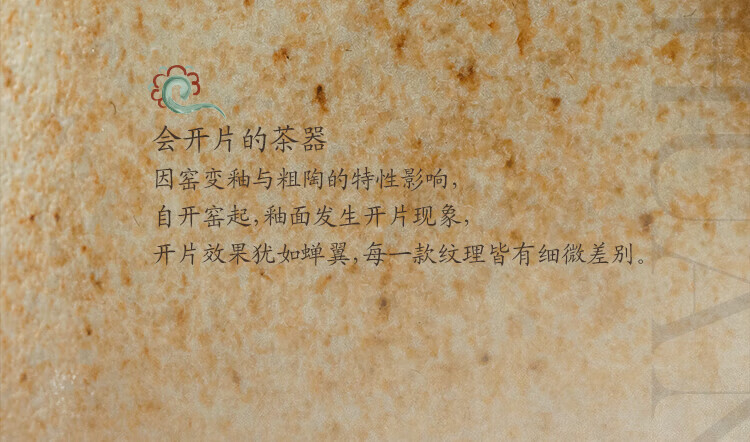 会开片的茶器
因窑变釉与粗陶的特性影响,
自开窑起,釉面发生开片现象,
开片效果犹如蝉翼,每一款纹理皆有细微差别。